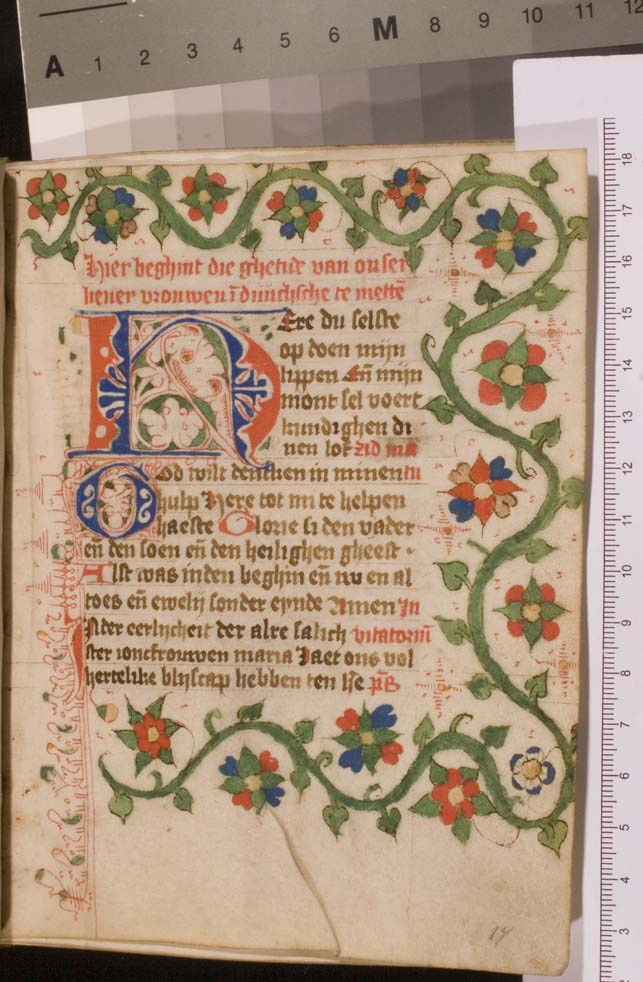 A 1 2 3 4 5 6 M 8 9 10 11 12
Hier beghint die ghetide van onser
lieuer vrouwen ī duutsche te mettē
Here du selste
op doen mijn
lippen Eñ mijn
mont sel voert
kundighen di
nen lof
God wilt dencken in minen tu
hulp Here tot mi te helpen
haeste Glorie si den vader
eñ den soen eñ den heilighen gheest
Alst was inden beghin eñ nu en al
toes eñ ewelij sonder eynde Amen In
der eerlijcheit der alre salich
ster ioncfrouwen maria Laet ons vol
hertelike blijscap hebben ten
17
18
17
16
15
14
13
12
11
10
9
8
7
6
5
4
3